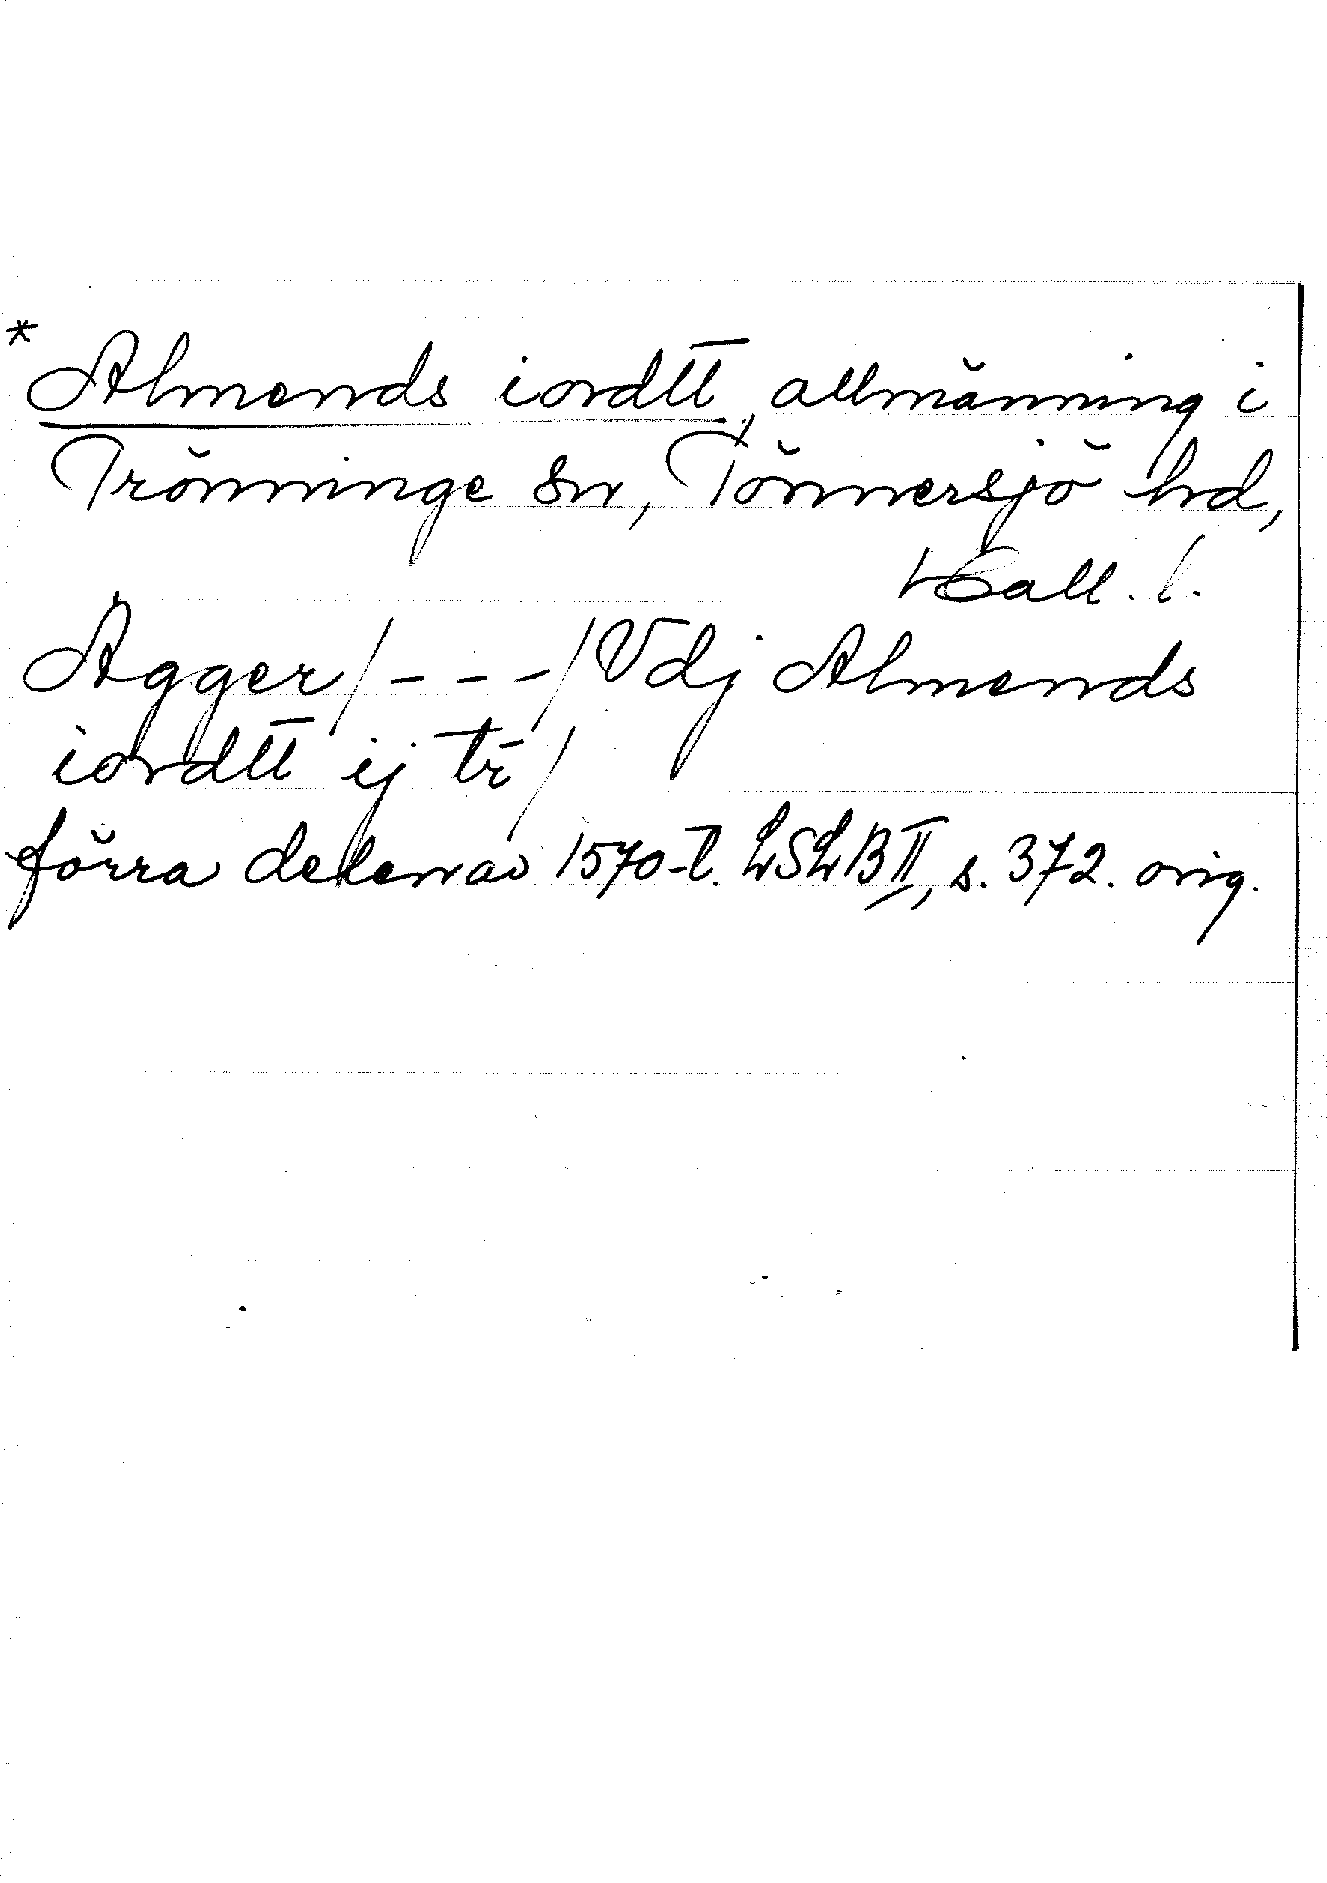 * Almends iordtt, allmänning i
Trönninge sn, Tönnersjö hd,
Hall. l.
Agger/---/Vdj Almends
iordtt ij tr/
förra delen av 1570-t. LSLB II, s. 372. orig.